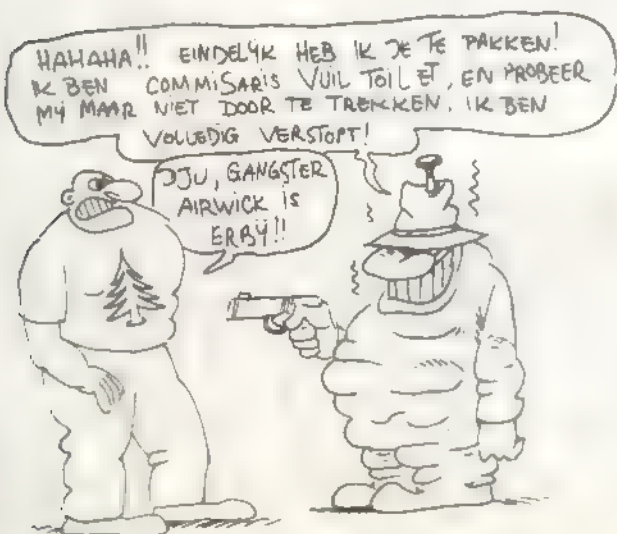 HAHAHA!! EINDELYK HEB IK JE TE PAKKEN!
IK BEN COMMISARIS VUIL TOILET, EN PROBEER
MY MAAR NIET DOOR TE TREKKEN. IK BEN
VOLLEDIG VERSTOPT!
DJU, GANGSTER
AIRWICK IS
ERBY!!